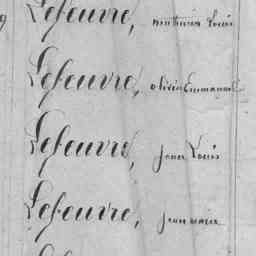 Lefeuvre, mathurin Louis
Lefeuvre, olivier Emmanuel
Lefeuvre, jean Louis
Lefeuvre, jean marie